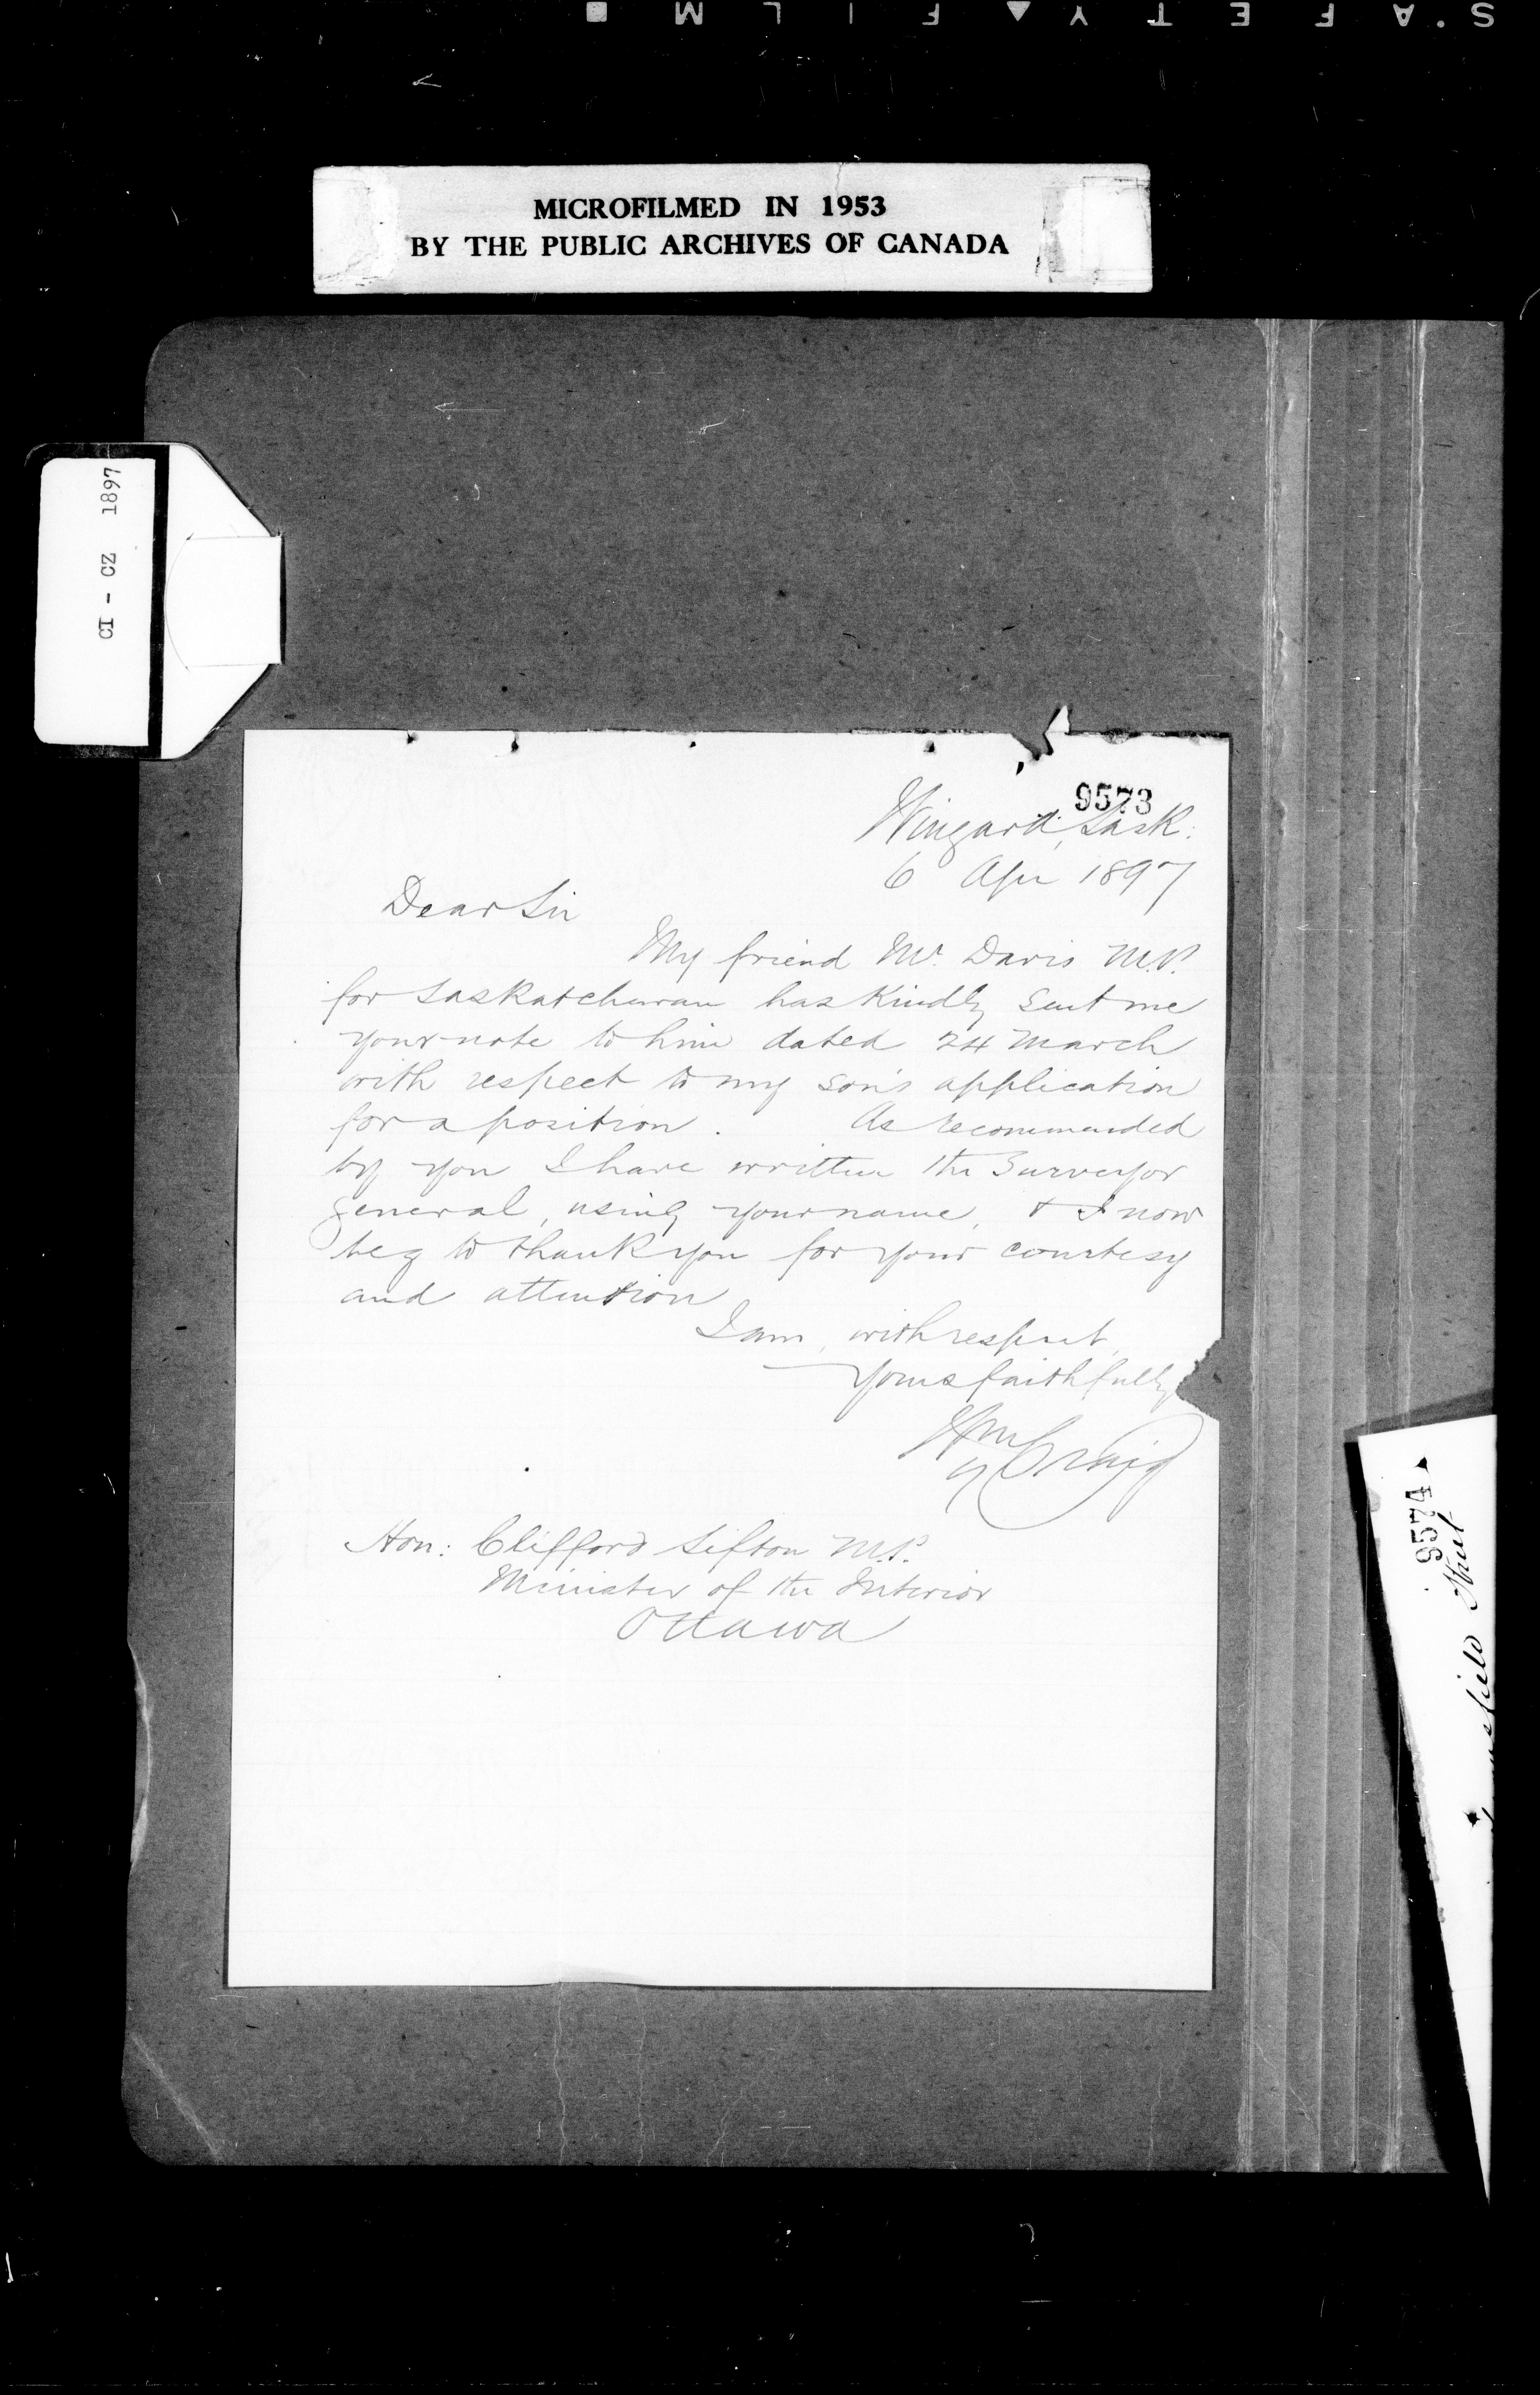 S.AFETY FILM
MICROFILMED IN 1953
BY THE PUBLIC ARCHIVES OF CANADA
CI - CZ 1897
9573
Wingard, Sask:
6 Apr 1897
Dear Sir
My friend Mr. Davis M.P.
for Saskatchewan has kindly sent me
your note to him dated 24 March
with respect to my son's application
for a position. As recommended
by you I have written the Surveyor
General, using your name, & I now
beg to thank you for your courtesy
and attention
I am, with respect,
Yours faithfully
Wm Craig
Hon: Clifford Sifton M.P.
Minister of the Interior
Ottawa
9574
Street